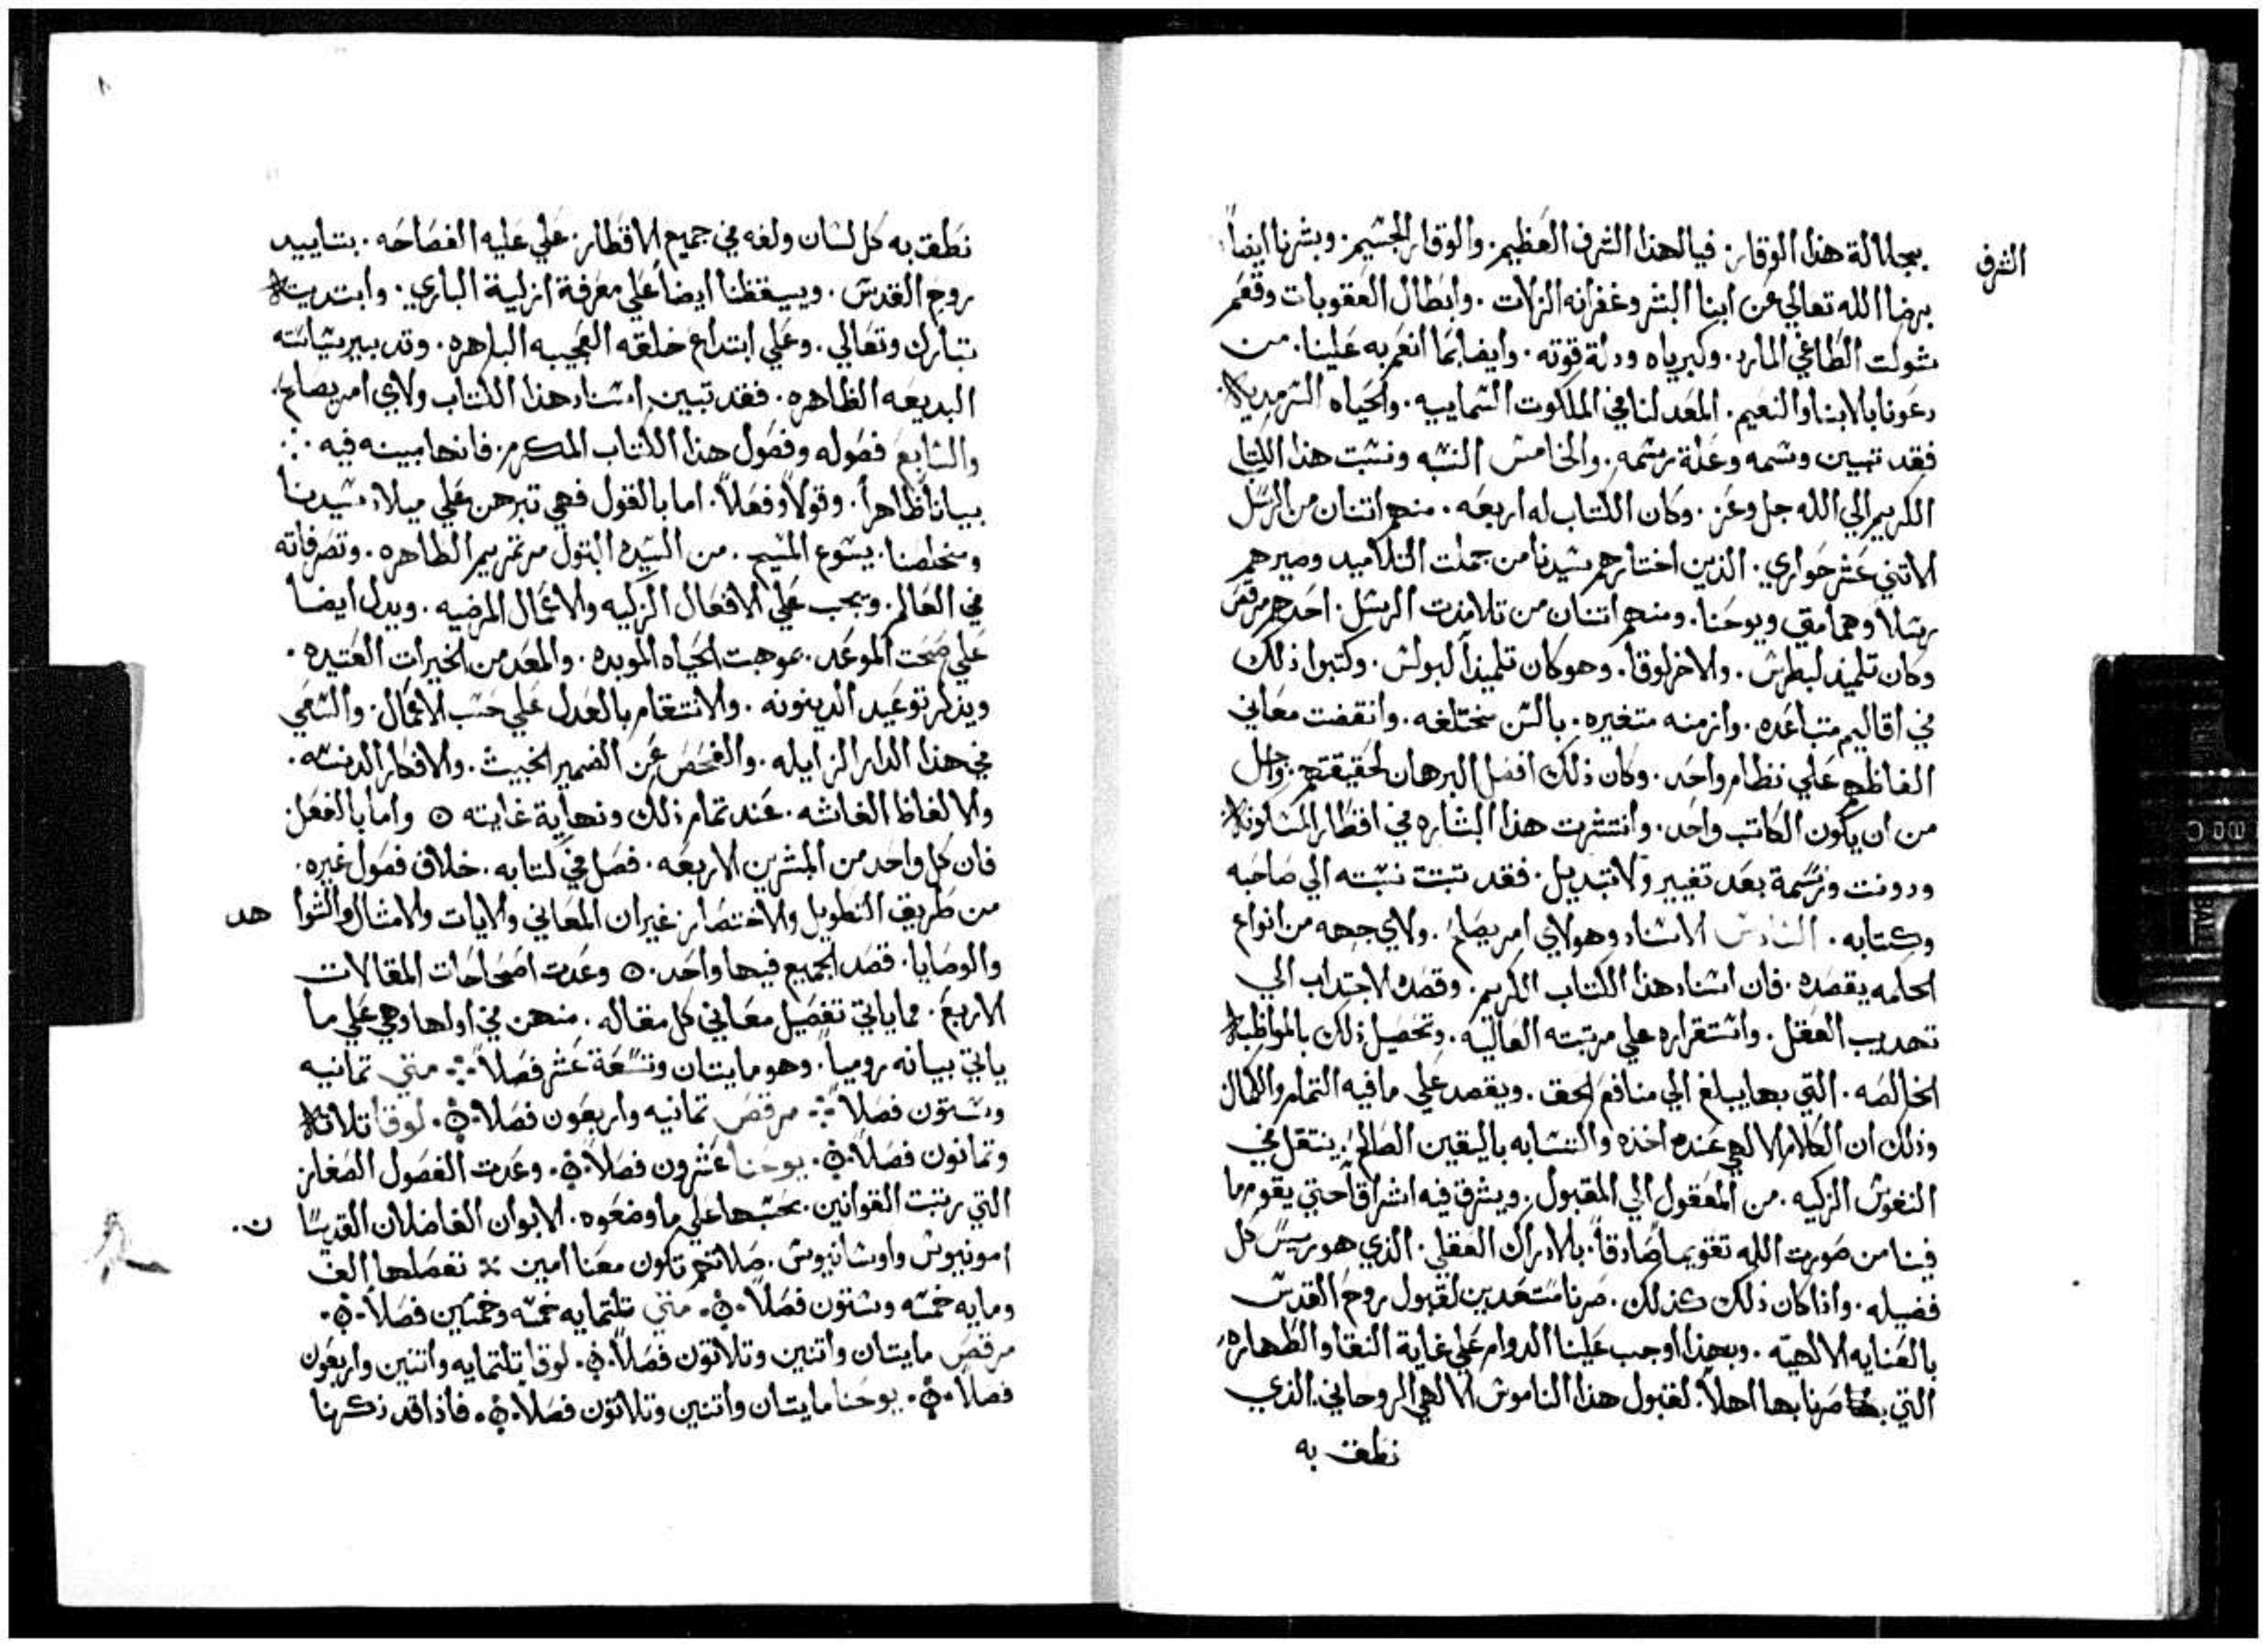 الشرف
بجلالة هذا الوقار. فيالهذا الشرف العظيم. والوقار الجسيم. وبشرنا ايضاً
برضا الله تعالي عن ابنا البشر وغفرانه الزلات. وابطال العقوبات وقمع
شولت الطاغي المارد. وكبرياه ودلة قوته. وايضا بما انعم به علينا. من
دعونا بالابنا والنعيم. المعد لنا في الملكوت السماييه. والحياه السرمديه.
فقد تبين وسمه وعلة رسمه. والخامس النسبه ونسبت هذا الكتاب
الكريم الي الله جل وعز. وكان الكتاب له اربعه. منهم اتنان من الرسل
الاتني عشر حواري. الذين اختارهم سيدنا من جملت التلاميد وصيرهم
رسلا وهما متي ويوحنا. ومنهم اتنان من تلامذت الرسل. احدهم مرقس
وكان تلميذ لبطرس. والاخر لوقا. وهو كان تلميذاً لبولس. وكتبوا ذلك
في اقاليم متباعده. وازمنه متغيره. بالسن مختلفه. واتفقت معاني
الفاظهم علي نظام واحد. وكان ذلك افضل البرهان لحقيقتهم. واجل
من ان يكون الكاتب واحد. وانتشرت هذا البشاره في اقطار المسكونه
ودونت ورسمة بعد تغيير ولا تبديل. فقد تبتت نسبته الي صاحبه
وكتابه. السادس الاسناد وهو لاي امر يصلح. ولاي جهه من انواع
الحكمه يقصده. فان اسناد هذا الكتاب الكريم. وقصده لاجتداب الي
تهديب العقل. واستقراره علي مرتبته العاليه. وتحصيل ذلك بالمواظبه
الخالصه. التي بها يبلغ الي منافع الحق. ويقصد علي ما فيه التمام والكمال
وذلك ان الكلام الالهي عنده اخذه والتشابه باليقين الصالح. ينتقل في
النفوس الزكيه. من المعقول الي المقبول. ويشرق فيه اشراقاً حتي يقوم ما
فينا من صورت الله تقويما صادقاً. بالادراك العقلي. الذي هو رييس كل
فضيله. واذا كان ذلك كذلك. صرنا مستعدين لقبول روح القدس
بالعنايه الالهيه. وبهذا اوجب علينا الدوام علي غاية النقا والطهاره
التي صرنا بها اهلاً. لقبول هذا الناموس الالهي الروحاني. الذي
نطق به
نطق به كل لسان ولغه في جميع الاقطار. علي عليه الفصاحه. بتاييد
روح القدس. وييقظنا ايضاً علي معرفة ازلية الباري. وابتديته
تبارك وتعالي. وعلي ابتداع خلقه العجيبه الباهره. وتدبير سياسته
البديعه الظاهره. فقد تبين اسناد هذا الكتاب ولاي امر يصلح.
والسابع فصوله وفصول هذا الكتاب المكرم. فانها مبينه فيه
بياناً ظاهراً. وقولاً وفعلاً. اما بالقول فهي تبرهن علي ميلاد سيدنا
ومخلصنا. يسوع المسيح. من السيده البتول مرتمريم الطاهره. وتصرفاته
في العالم. وتجب علي الافعال الزكيه والاعمال المرضيه. ويدل ايضا
علي صحت الموعد. بموهبت الحياه الموبده. والمعد من الخيرات العتيده.
ويذكر توعيد الدينونه. والانتقام بالعدل علي حسب الاعمال. والسعي
في هذا الدار الزايله. والفحص عن الضمير الخبيث. والافكار الدنسه.
والالفاظ الفاشه. عند تمام ذلك ونهاية غايته ⊙ واما بالفعل
فان كل واحد من المبشرين الاربعه. فصل في كتابه. خلاف فصول غيره.
من طريق التطويل والاختصار. غير ان المعاني والايات والامثال والشواهد
والوصايا. قصد الجميع فيها واحد. ⊙ وعدت اصحاحات المقالات
الاربع. مما ياتي تفصيل معاني كل مقاله. منهن في اولها وهي علي ما
ياتي بيانه رومياً. وهو مايتان وتسعة عشر فصلاً. متي تمانيه
وستون فصلاً. مرقص تمانيه واربعون فصلا. لوقا تلاته
وتمانون فصلا. يوحنا عشرون فصلاً. وعدت الفصول الصغار
التي رتبت القوانين. بحسبها علي ما وضعوه. الابوان الفاضلان القديسان.
امونيوس واوسانيوس. صلاتهم تكون معنا امين. تفصلها الف
ومايه خمسه وستون فصلاً. متي تلتمايه خمسه وخمسين فصلاً.
مرقص مايتان واتنين وتلاتون فصلاً. لوقا تلتمايه واتنين واربعون
فصلا. يوحنا مايتان واتنين وتلاتون فصلا. فاذا قد ذكرنا